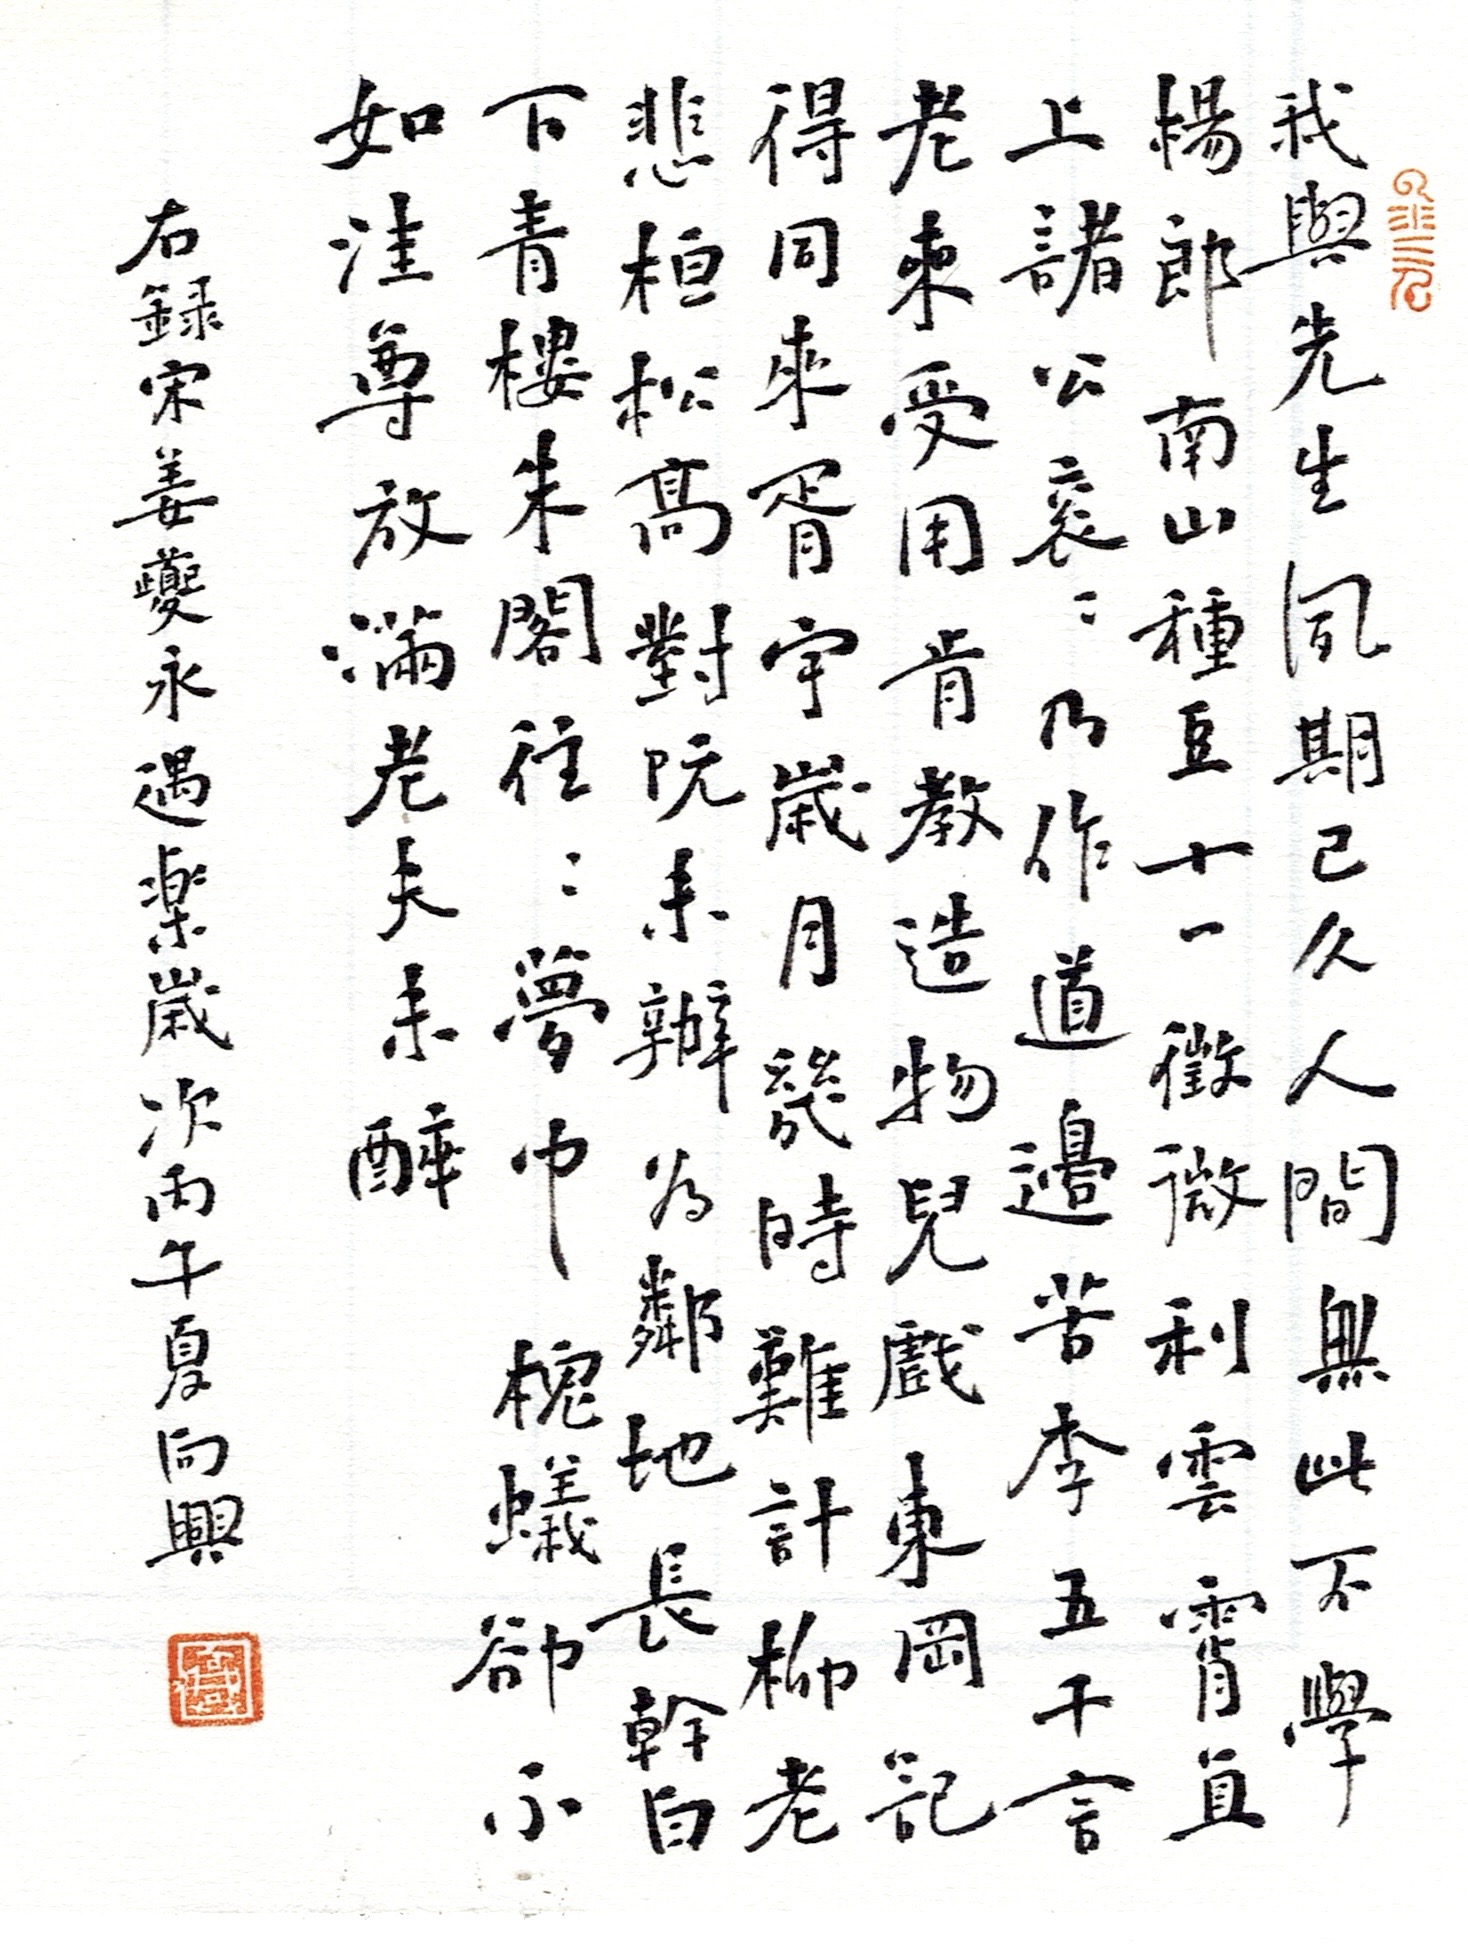 我與先生夙期已久人間無此不學
楊郎南山種豆十一徵微利雲霄直
上諸公袞〻乃作道邊苦李五千言
老來受用肯教造物兒戲東岡記
得同來胥宇歲月幾時難計柳老
悲桓松高對阮未辦為鄰地長幹白
下青樓朱閣往〻夢中槐蟻卻不
如洼尊放滿老夫未醉
右録宋姜夔永遇楽歲次丙午夏向興